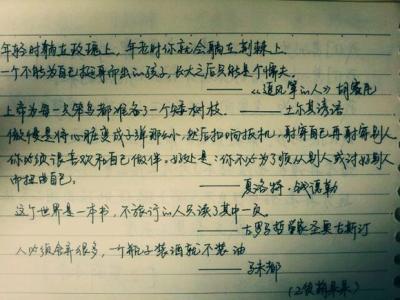 年轻时躺在玫瑰上，年老时你就会躺在荆棘上.
一个不能为自己挺身而出的孩子，长大之后只能是个懦夫。
——《追风筝的人》胡赛尼
上帝为每一只笨鸟都准备了一个矮树枝. ——土尔其谚语
做
然后扣响扳机，射穿自己再射穿别人
你必须很喜欢和自己做伴。好处是：你不必为了顺从别人或讨好别人
而扭曲自己。
——夏洛特·钱德勒
这个世界是一本书，不旅行的人只读了其中一页。
——古罗马哲学家圣奥古斯汀
人必须舍弃很多，一个瓶子装酒就不装油
——马未都